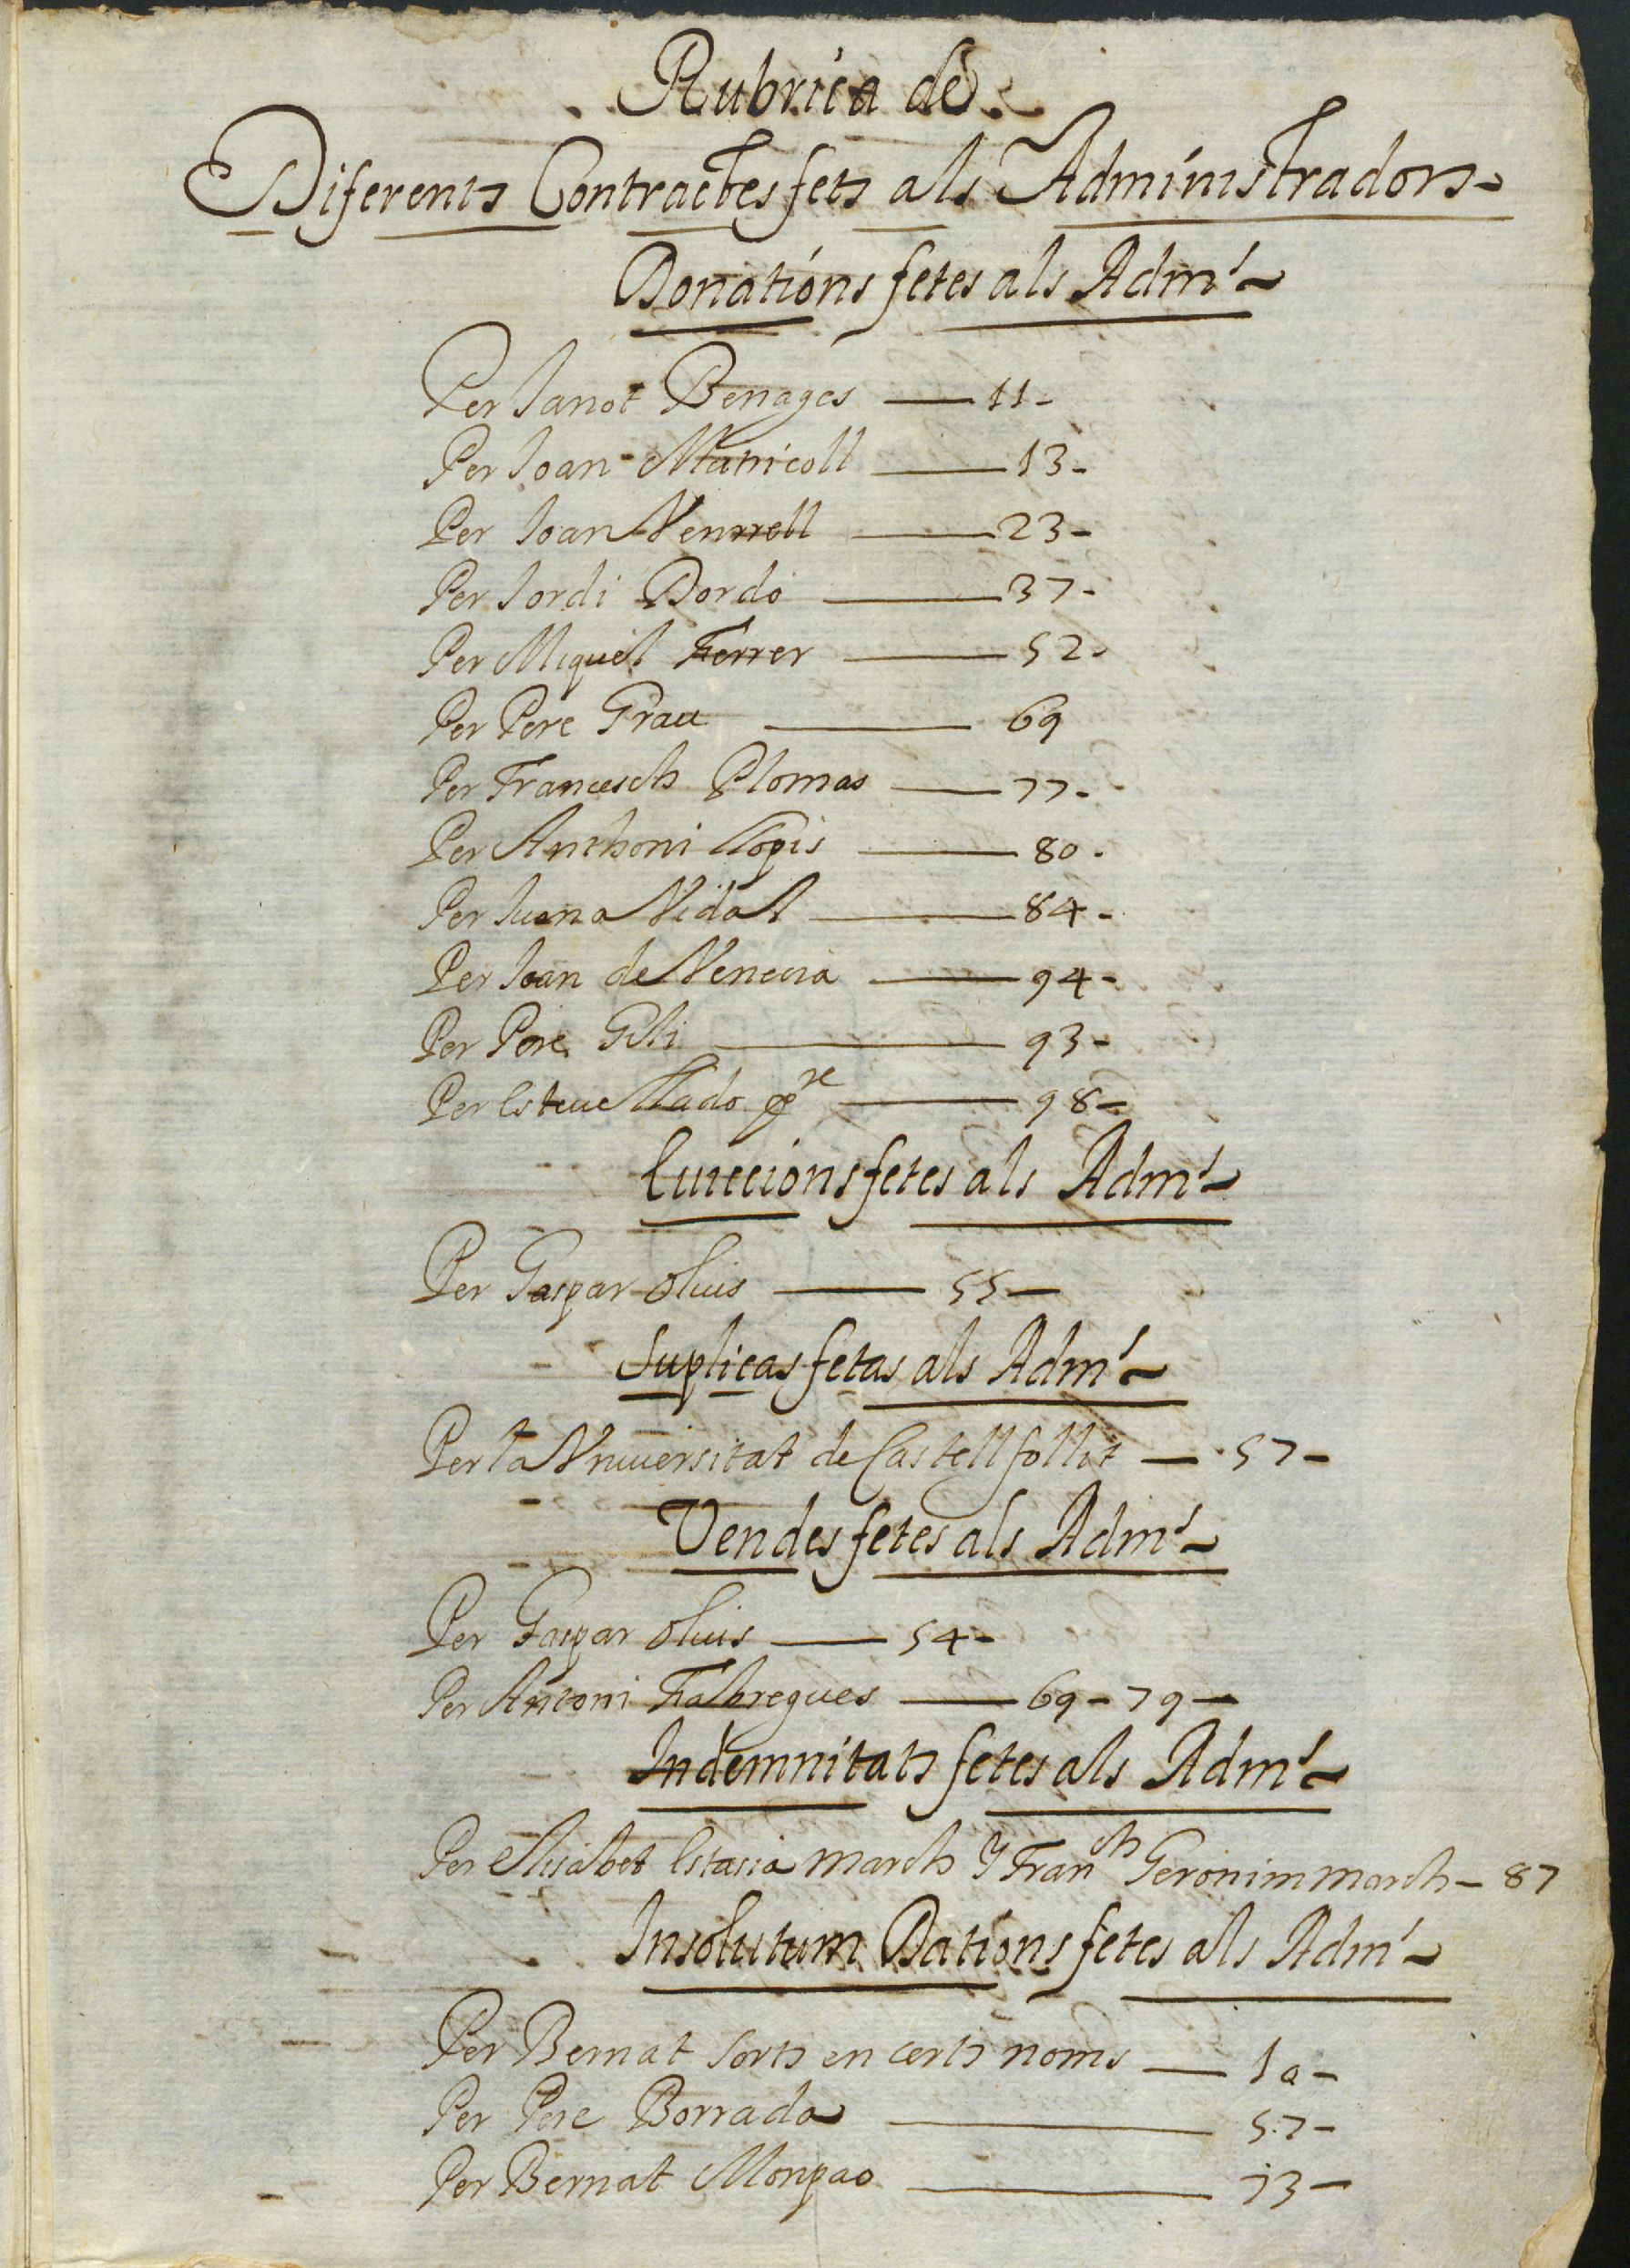 Rubrica de
Diferents Contractes fets als Administradors
Donations fetes als Adm.ˢ
Per Janot Benages — 11
Per Joan Municoll — 13
Per Joan Venrrell — 23
Per Jordi Dordo — 37
Per Miquel Ferrer — 52
Per Pere Grau — 69
Per Francesch Plomas — 77
Per Anthoni Llopis — 80
Per Juana Vidal — 84
Per Joan de Venecia — 94
Per Pere Gili — 93
Per Esteue Llado pre — 98
Luiccions fetes als Adm.ˢ
Per Gaspar Oluis — 55
Suplicas fetas als Adm.ˢ
Per la Vniuersitat de Castellfollit — 57
Vendes fetes als Adm.ˢ
Per Gaspar Oluis — 54
Per Antoni Fabregues — 69 - 79
Indemnitats fetes als Adm.ˢ
Per Elisabet Estasia march y Franch Geronim march — 87
Insolutum Dations fetes als Adm.ˢ
Per Bernat Sorts en certs noms — 1a
Per Pere Borrada — 57
Per Bernat Monpao — 73